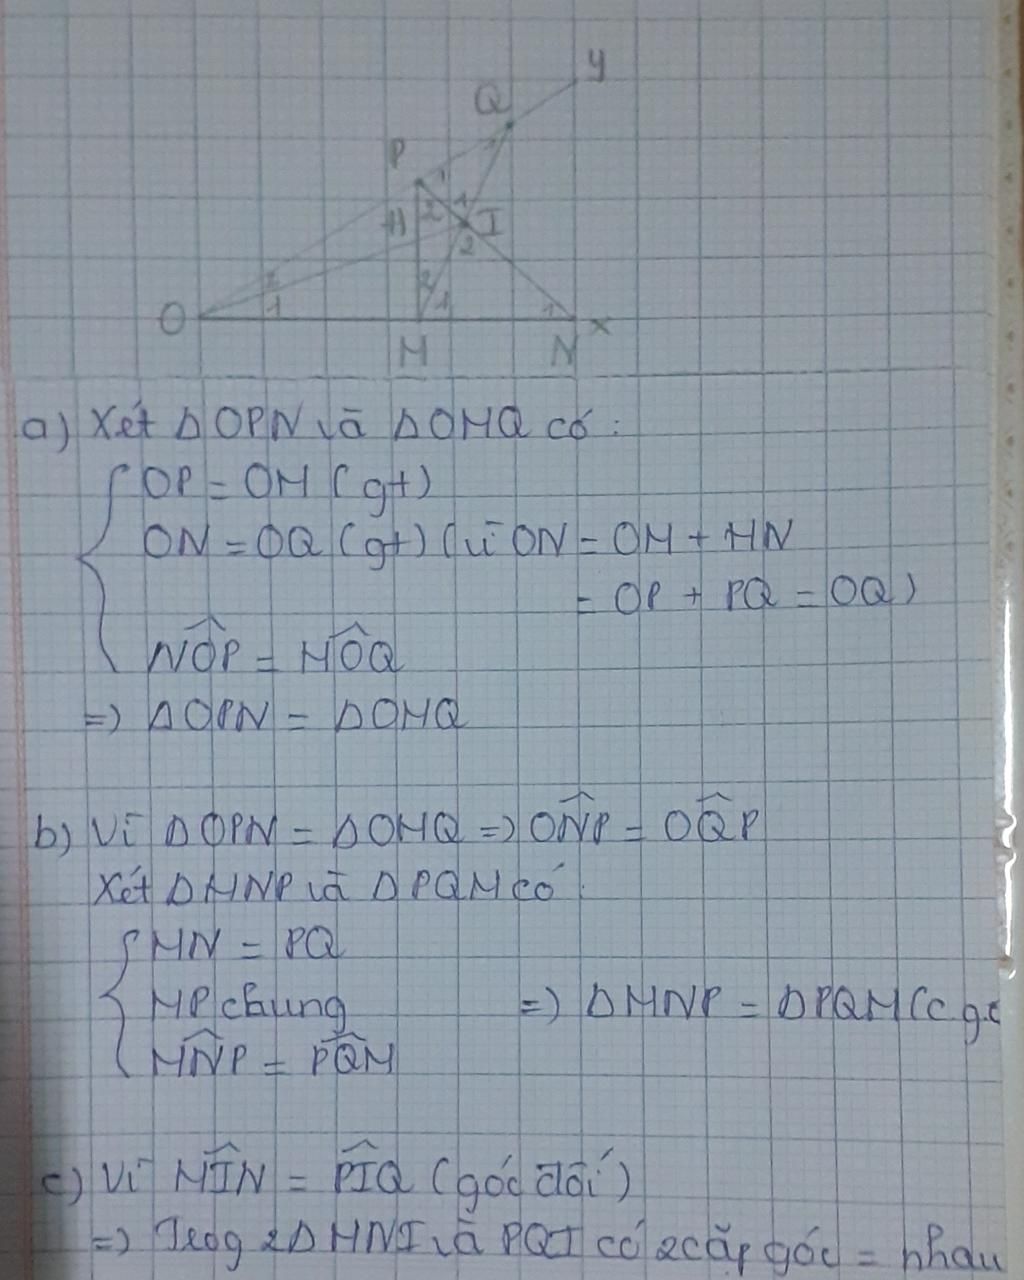 y
Q
P
1
1
1
H
2
I
2
2
2
1
1
1
O
x
M
N
a) Xét ΔOPN và ΔOMQ có:
OP = OM (gt)
ON = OQ (gt) (vì ON = OM + MN
= OP + PQ = OQ)
NÔP = MÔQ
=) ΔOPN = ΔOMQ
b) Vì ΔOPN = ΔOMQ =) ON̂P = OQ̂P
Xét ΔMNP và ΔPQM có:
MN = PQ
MP chung
=) ΔMNP = ΔPQM (c.g.c
MN̂P = PQ̂M
c) Vì MÎN = PÎQ (góc đối)
=) Trog 2Δ MNI và PQI có 2 cặp góc = nhau